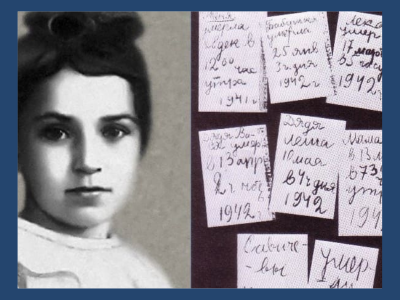 Женя
умерла
28 дек в
12 00 час
утра
1941 г
Бабушка
умерла
25 янв
3 ч дня
1942 г
Лека
умер
17 марта
в 5 час
1942 г
Дядя Ва-
ся умер
в 13 апр
2 ч ноч
1942
Дядя
Леша
10 мая
в 4 ч дня
1942
Мама
в 13 м
в 7 3
утр
194
Савиче-
вы
Умер-
ли